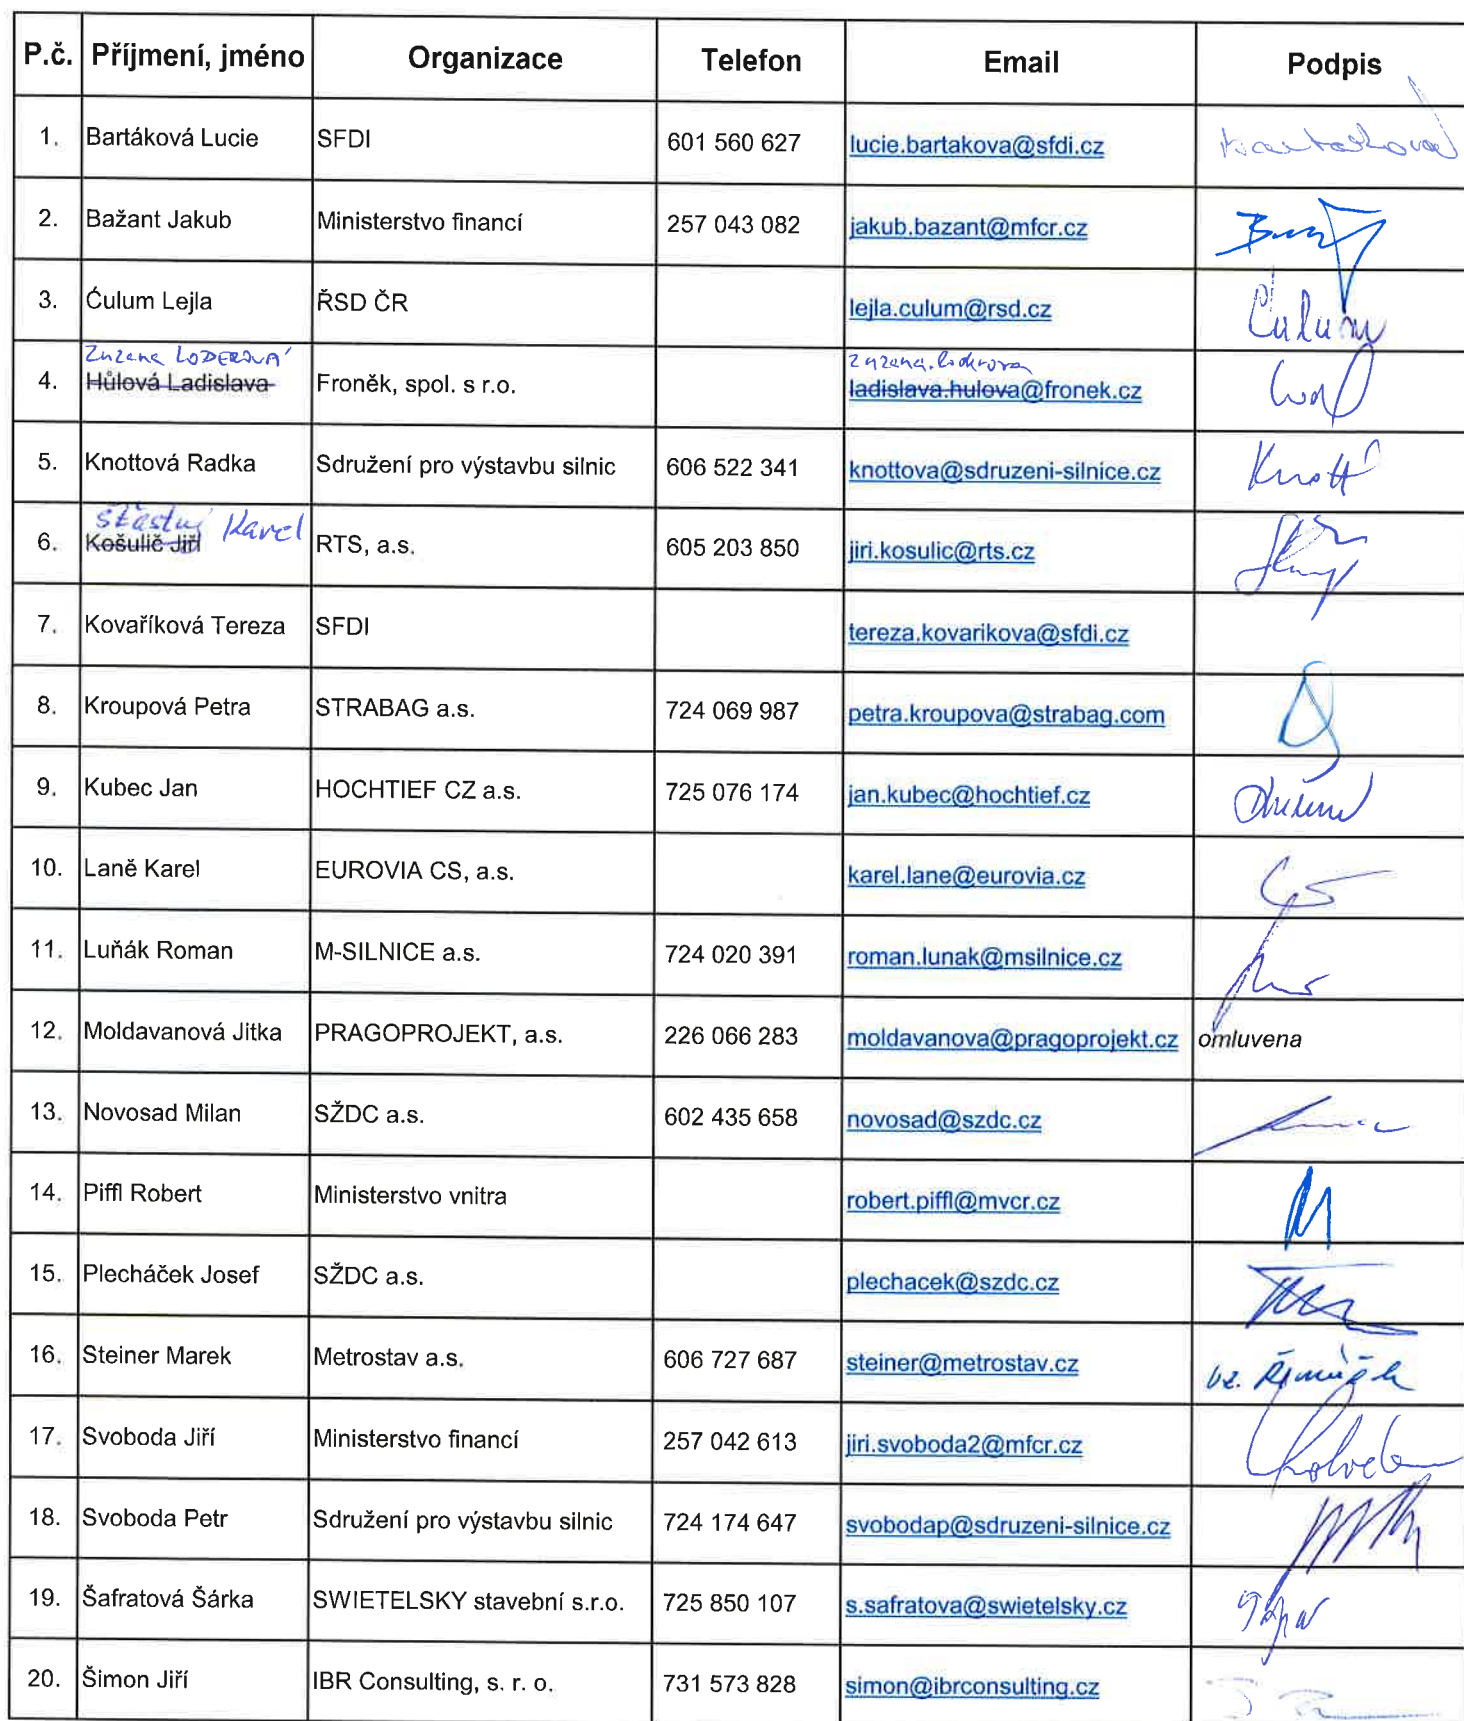 P.č. Příjmení, jméno Organizace Telefon Email Podpis
1. Bartáková Lucie SFDI 601 560 627 lucie.bartakova@sfdi.cz Bartáková
2. Bažant Jakub Ministerstvo financí 257 043 082 jakub.bazant@mfcr.cz
3. Ćulum Lejla ŘSD ČR lejla.culum@rsd.cz Ćulum
Zuzana LODEROVÁ zuzana.loderova
4. Hůlová Ladislava Froněk, spol. s r.o. ladislava.hulova@fronek.cz
5. Knottová Radka Sdružení pro výstavbu silnic 606 522 341 knottova@sdruzeni-silnice.cz Knott
Šťastný Karel
6. Košulič Jiří RTS, a.s. 605 203 850 jiri.kosulic@rts.cz
7. Kovaříková Tereza SFDI tereza.kovarikova@sfdi.cz
8. Kroupová Petra STRABAG a.s. 724 069 987 petra.kroupova@strabag.com
9. Kubec Jan HOCHTIEF CZ a.s. 725 076 174 jan.kubec@hochtief.cz
10. Laně Karel EUROVIA CS, a.s. karel.lane@eurovia.cz
11. Luňák Roman M-SILNICE a.s. 724 020 391 roman.lunak@msilnice.cz
12. Moldavanová Jitka PRAGOPROJEKT, a.s. 226 066 283 moldavanova@pragoprojekt.cz omluvena
13. Novosad Milan SŽDC a.s. 602 435 658 novosad@szdc.cz
14. Piffl Robert Ministerstvo vnitra robert.piffl@mvcr.cz
15. Plecháček Josef SŽDC a.s. plechacek@szdc.cz
16. Steiner Marek Metrostav a.s. 606 727 687 steiner@metrostav.cz vz.
17. Svoboda Jiří Ministerstvo financí 257 042 613 jiri.svoboda2@mfcr.cz
18. Svoboda Petr Sdružení pro výstavbu silnic 724 174 647 svobodap@sdruzeni-silnice.cz
19. Šafratová Šárka SWIETELSKY stavební s.r.o. 725 850 107 s.safratova@swietelsky.cz
20. Šimon Jiří IBR Consulting, s. r. o. 731 573 828 simon@ibrconsulting.cz